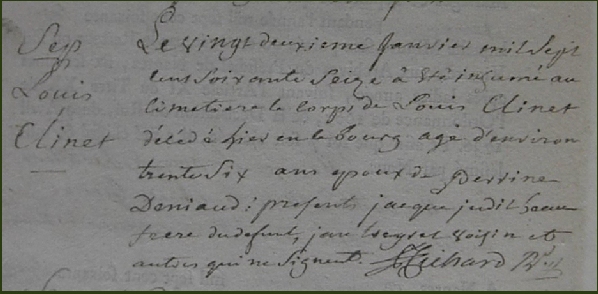 Sep
Louis
Elinet
Le vingt deuxieme Janvier mil sept
cens soixante seize à été inhumé au
Cimetiere le corps de Louis Elinet
décédé hier en le bourg agé d'environ
trente six ans epoux de Perrine
Deniaud : presents jacque judit beau
frere du defunt, jan voisin et
autres qui ne signent. Richard